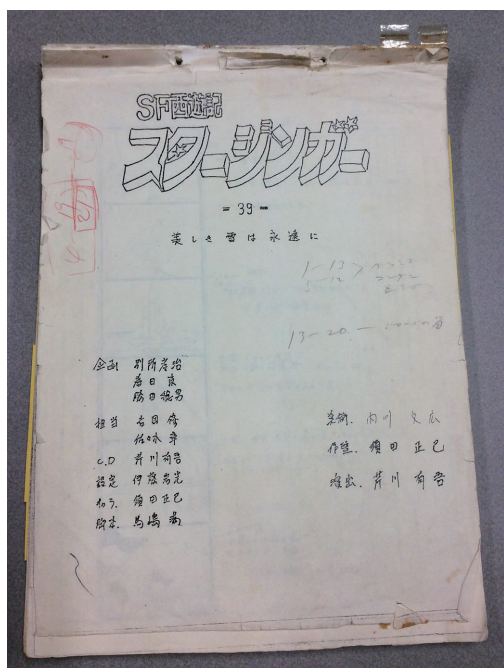 SF西遊記
スタージンガー
= 39 =
美しき雪は永遠に
1-13
13-20. -
企画 別所孝治
春日東
勝田稔男
担当 吉田修
佐々木章
C.D 芹川有吾
設定 伊藤岩光
キャラ. 須田正己
脚本 馬嶋満
美術. 内川文広
作監. 須田正己
演出. 芹川有吾